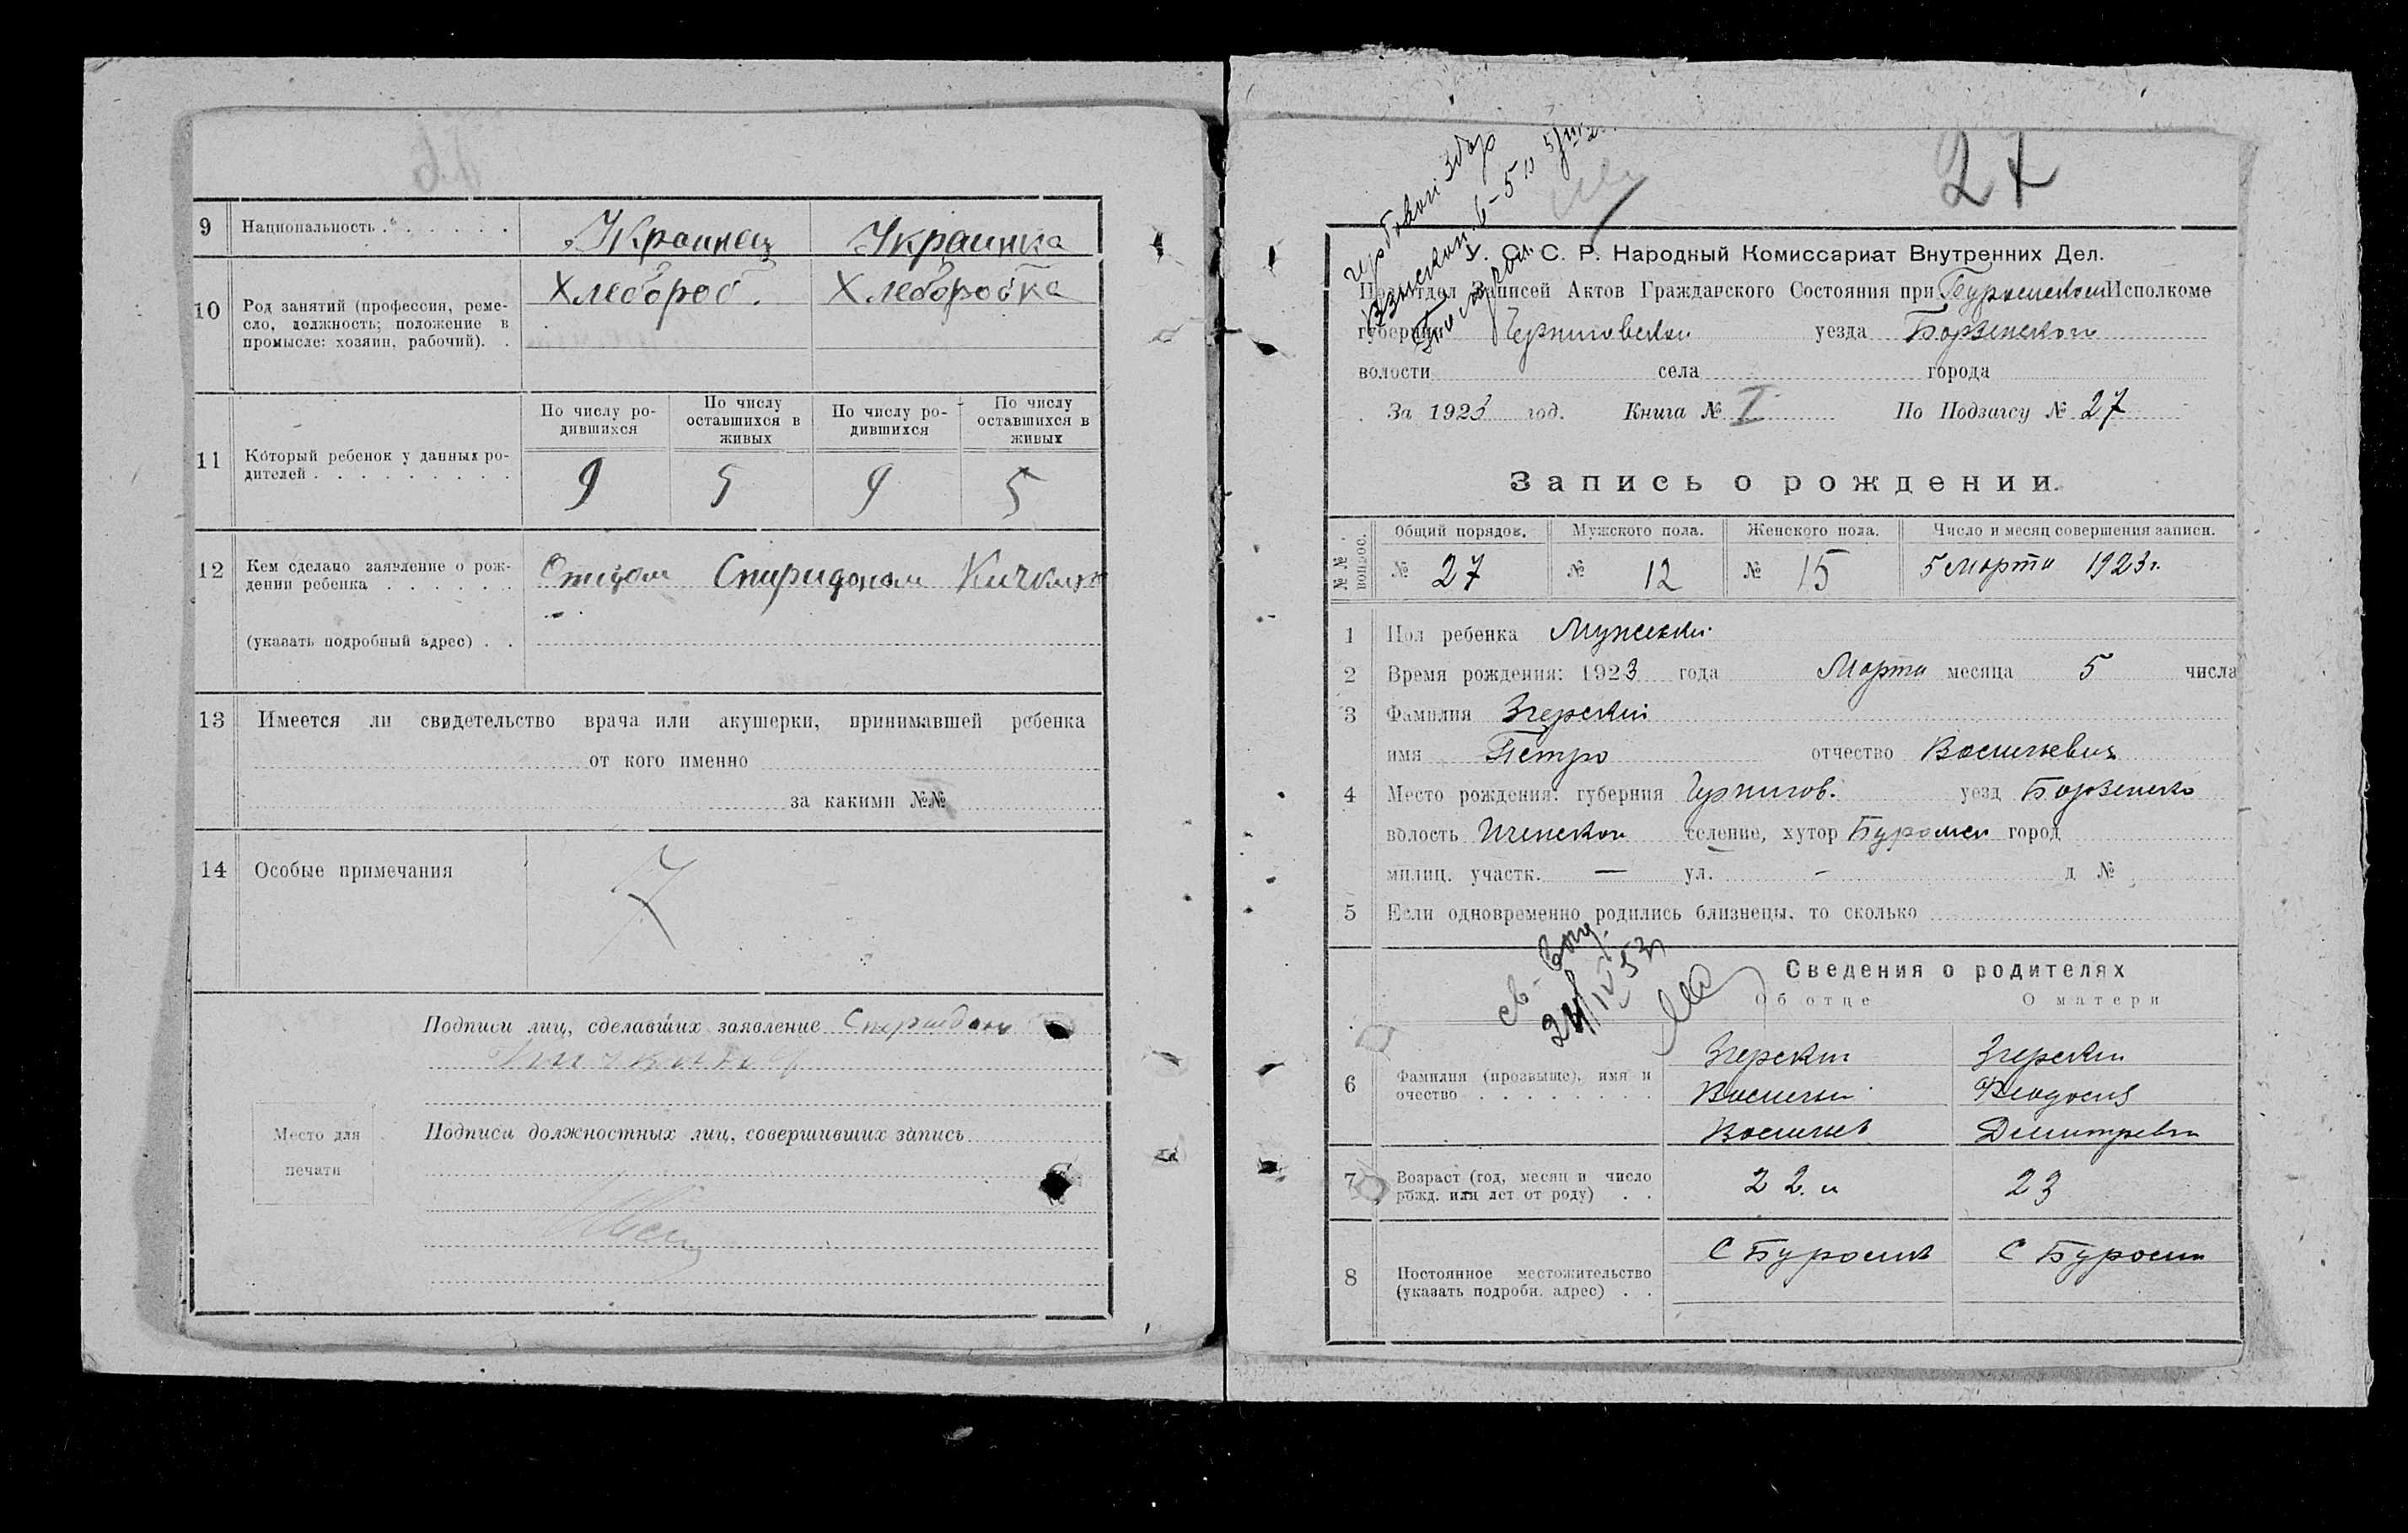 9 Национальность . . . . . . . Украинец Украинка
10 Род занятий (профессия, реме-
сло, должность; положение в
промысле: хозяин, рабочий). .
Хлебороб. Хлеборобка
По числу ро-
дившихся
По числу
оставшихся в
живых
По числу ро-
дившихся
По числу
оставшихся в
живых
11 Который ребенок у данных ро-
дителей . . . . . . . . .
9 5 9 5
12 Кем сделано заявление о рож-
дении ребенка . . . . . .
Отцом Спиридоном
(указать подробный адрес) . .
13 Имеется ли свидетельство врача или акушерки, принимавшей ребенка
от кого именно
за какими №№
14 Особые примечания
Подписи лиц, сделавших заявление Спиридон
Место для
печати
Подписи должностных лиц, совершивших запись
27
У. С. С. Р. Народный Комиссариат Внутренних Дел.
Подотдел Записей Актов Гражданского Состояния при Исполкоме
губернии Черниговской уезда Борзенского
волости села города
За 1923 год. Книга № I По Подзагсу № 27
Запись о рождении.
№№ вопрос.
Общий порядов. Мужского пола. Женского пола. Число и месяц совершения записи.
№ 27 № 12 № 15 5 марта 1923 г.
1 Пол ребенка Мужский
2 Время рождения: 1923 года Марта месяца 5 числа
3 Фамилия Згерский
имя Петро отчество Васильевич
4 Место рождения: губерния Чернигов. уезд Борзенско
волость Иченской селение, хутор Буромка город
милиц. участк. — ул. - д №
5 Если одновременно родились близнецы, то сколько
24/IV 53
Сведения о родителях
Об отце О матери
6 Фамилия (прозвыще), имя и
очество . . . . . . . .
Згерский Згерский
Василий Феодосия
Васильев Димитревна
7 Возраст (год, месяц и число
рожд. или лет от роду) . .
22 23
8 Постоянное местожительство
(указать подробн. адрес) . .
С Буромка С Буромка